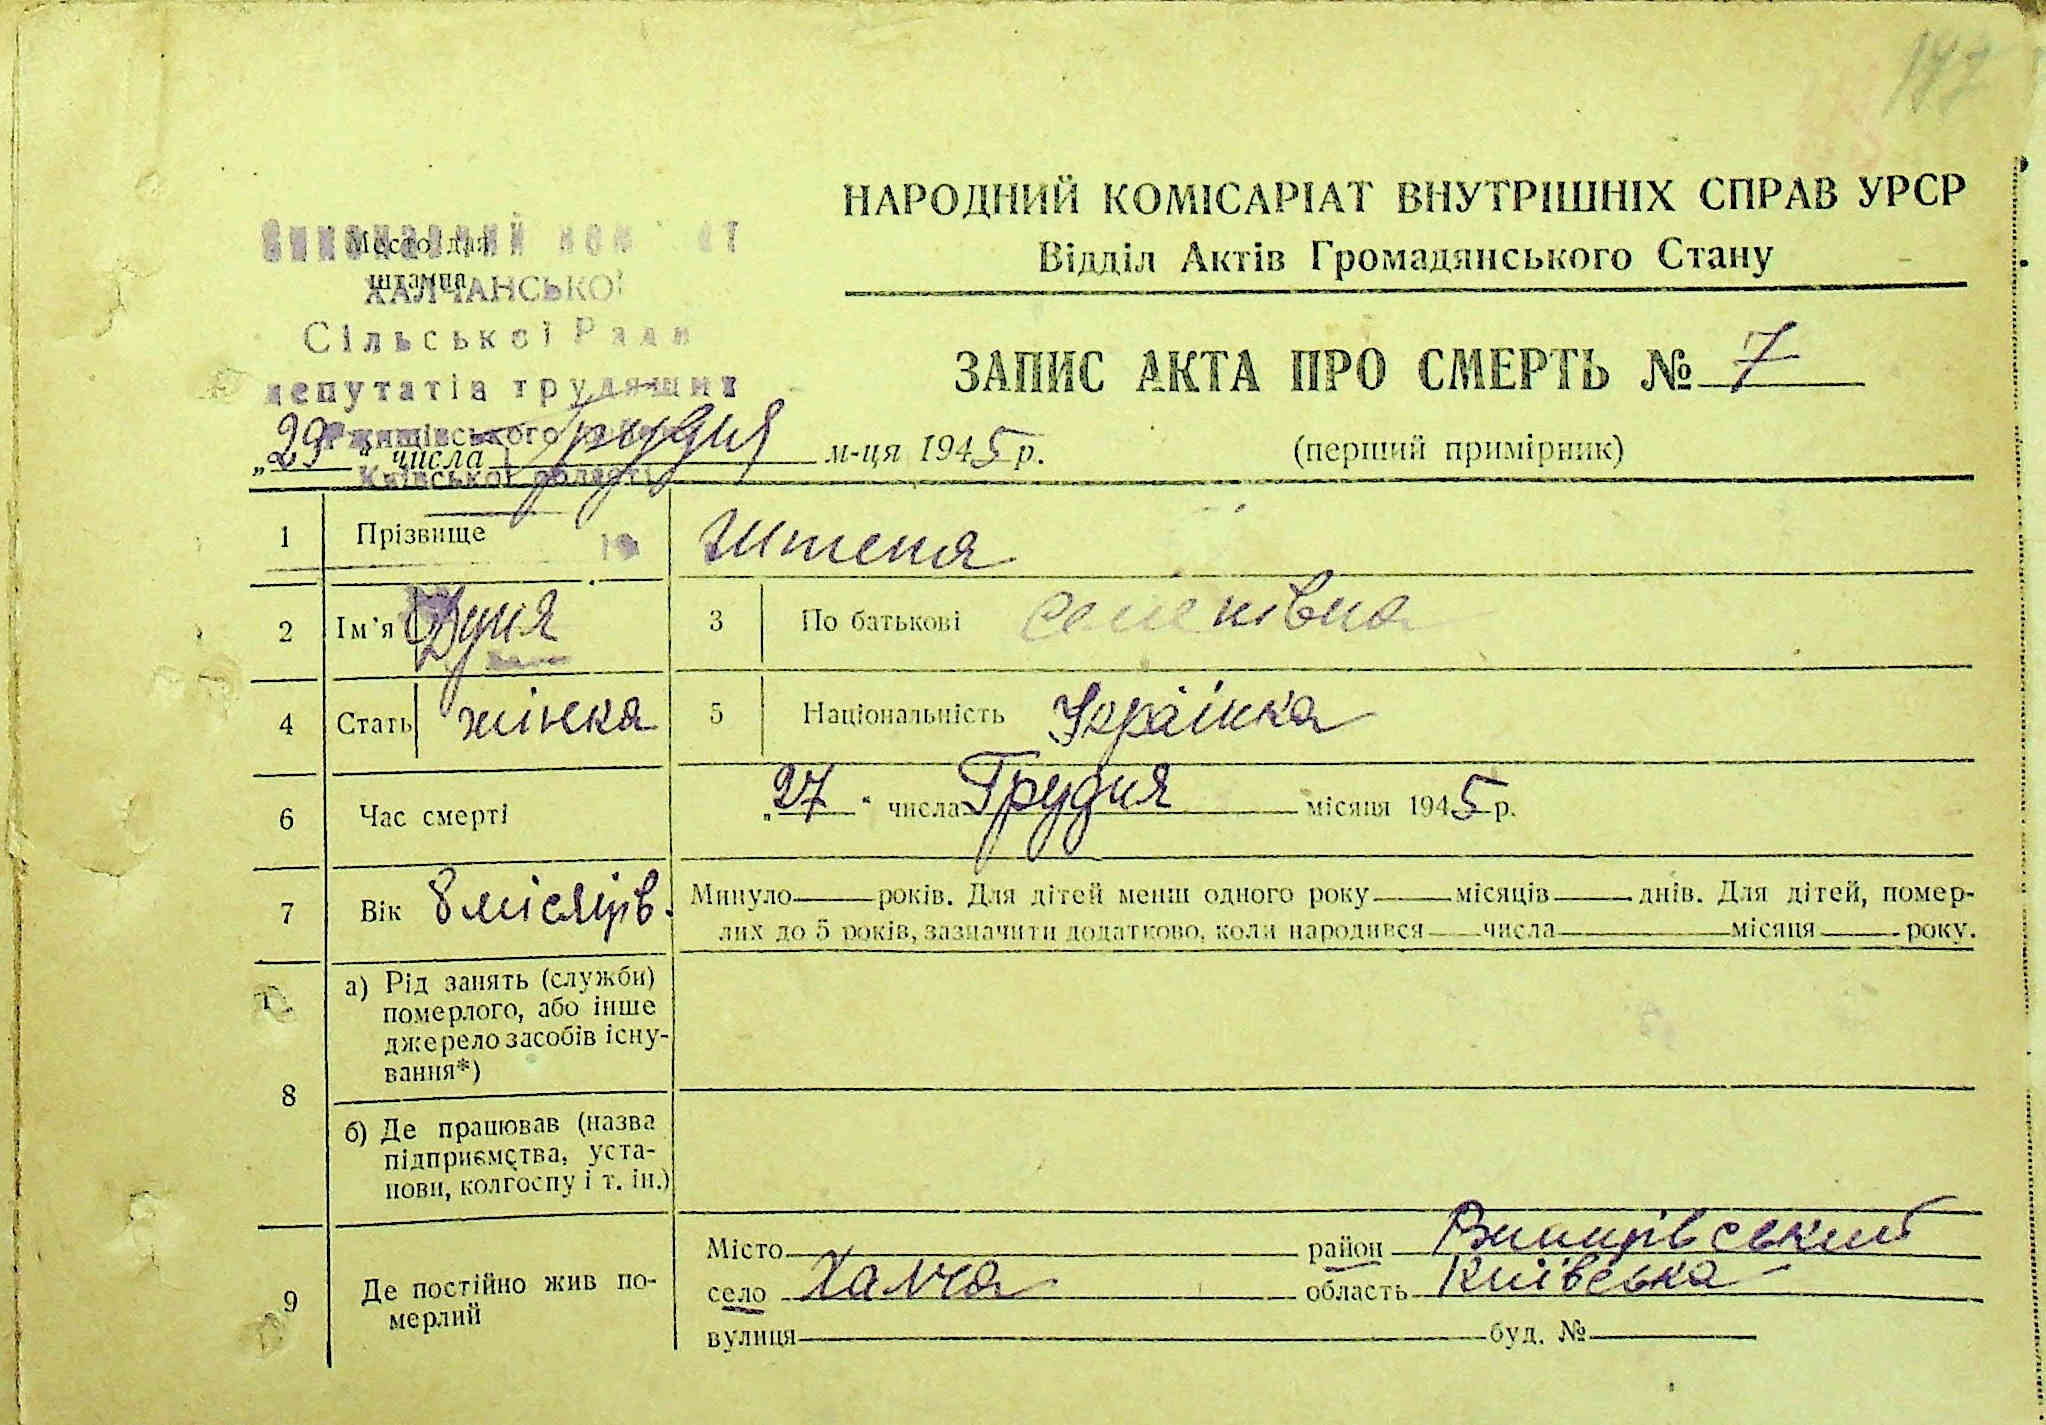 147
НАРОДНИЙ КОМІСАРІАТ ВНУТРІШНІХ СПРАВ УРСР
Відділ Актів Громадянського Стану
Место для
штампа
Виконавчий ком т
ХАЛЧАНСЬКОЇ
Сільської Ради
депутатів трудящих
Ржищівського району
Київської області
ЗАПИС АКТА ПРО СМЕРТЬ № 7
„29“ числа Грудня м-ця 1945 р.
(перший примірник)
1 Прізвище 19 Штепа
2 Ім'я Дуня 3 По батькові Семенівна
4 Стать жінка 5 Національність Українка
6 Час смерті „27“ числа Грудня місяця 1945 р.
7 Вік 8 місяців. Минуло років. Для дітей менш одного року місяців днів. Для дітей, помер-
лих до 5 років, зазначити додатково, коли народився числа місяця року.
8 а) Рід занять (служби)
померлого, або інше
джерело засобів існу-
вання*)
б) Де працював (назва
підприємства, уста-
нови, колгоспу і т. ін.)
9 Де постійно жив по-
мерлий
Місто район
село Халча область Київська
вулиця буд. №